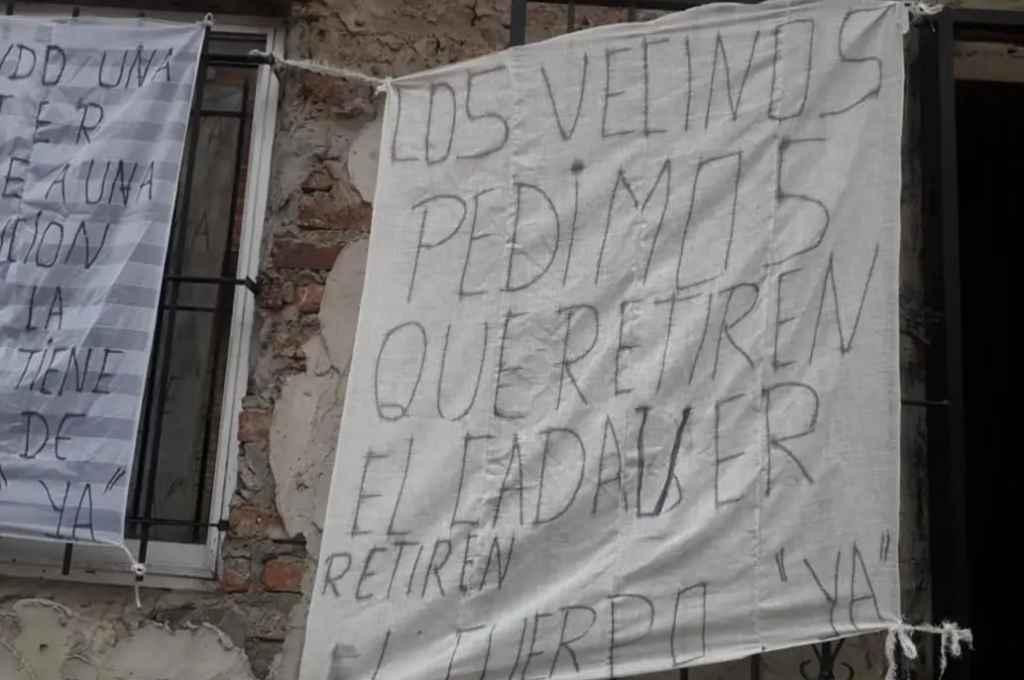 UNA
A UNA
LA
TIENE
DE
"YA"
LOS VECINOS
PEDIMOS
QUE RETIREN
EL CADAVER
RETIREN
EL CUERPO "YA"